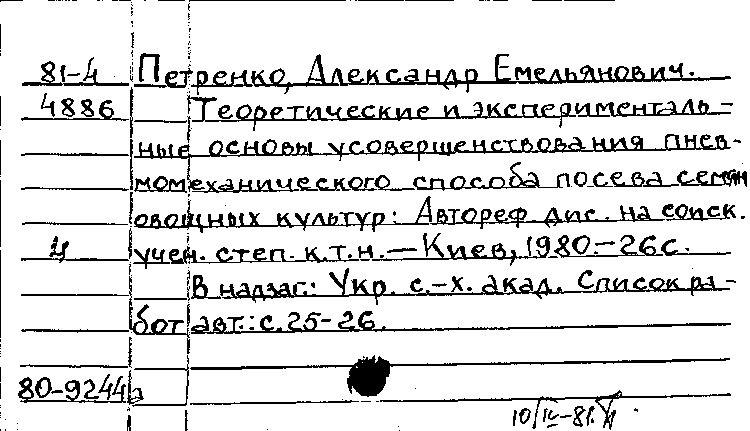 81-4 Петренко, Александр Емельянович.
4886 Теоретические и эксперименталь-
ные основы усовершенствования пнев-
момеханического способа посева семян
овощных культур: Автореф. дис. на соиск.
учен. степ. к.т.н. — Киев, 1980. - 26 с.
В надзаг.: Укр. с.-х. акад. Список ра-
бот авт.: с. 25-26.
80-9244а
10/IV-81.